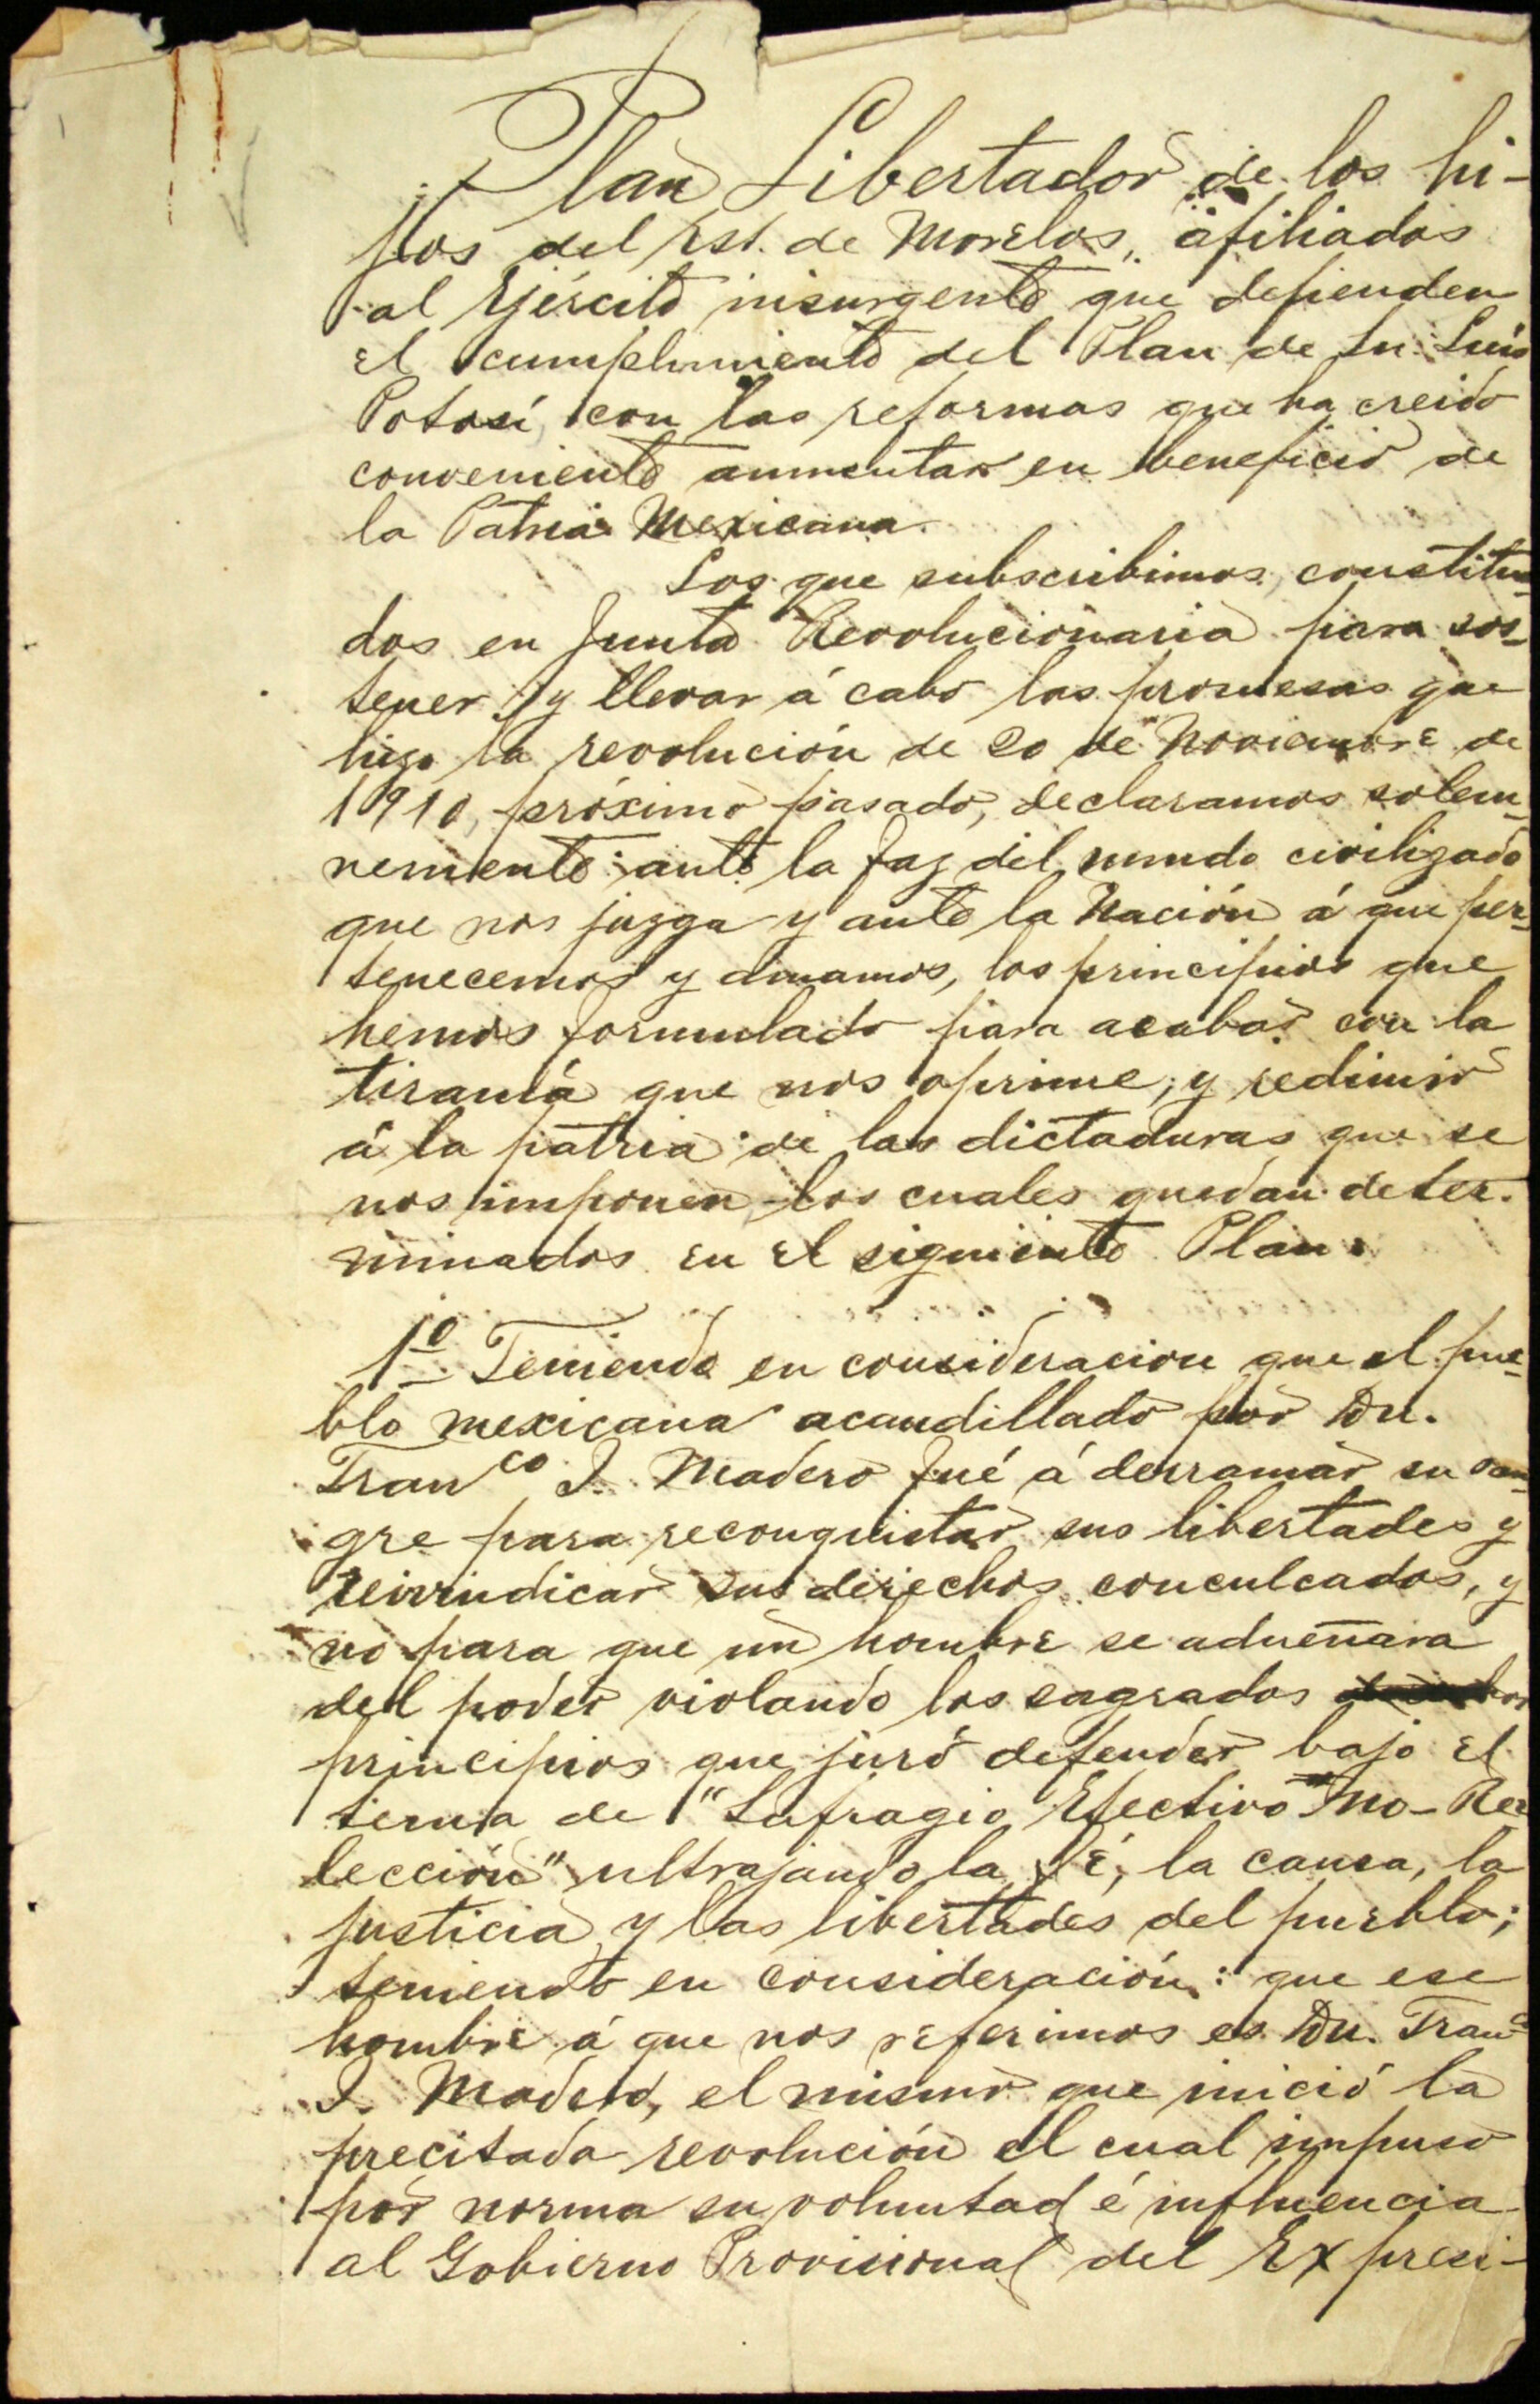 Plan Libertador de los hi-
jos del Est. de Morelos, afiliados
al Ejército insurgente que defienden
el cumplimiento del Plan de Sn. Luis
Potosí, con las reformas que ha creido
conveniente aumentar en beneficio de
la Patria Mexicana.
Los que subscribimos, constitui-
dos en Junta Revolucionaria para sos-
tener y llevar á cabo las promesas que
hizo la revolución de 20 de Noviembre de
1910, próximo pasado, declaramos solem-
nemente ante la faz del mundo civilizado
que nos juzga y ante la Nación á que per-
tenecemos y amamos, los principios que
hemos formulado para acabar con la
tiranía que nos oprime, y redimir
á la patria de las dictaduras que se
nos imponen, los cuales quedan deter-
minados en el siguiente Plan.
1º Teniendo en consideracion que el pue-
blo mexicana acaudillado por Dn.
Franco I. Madero fué á derramar su san-
gre para reconquistar sus libertades y
reivindicar sus derechos conculcados, y
no para que un hombre se adueñara
del poder violando los sagrados
principios que juró defender bajo el
tema de "Sufragio Efectivo" "No-Ree-
lección" ultrajando la fé, la causa, la
justicia y las libertades del pueblo;
teniendo en consideración: que ese
hombre á que nos referimos es Dn. Franco
I. Madero, el mismo que inició la
precitada revolución el cual impuso
por norma su voluntad é influencia
al Gobierno Provisional del Ex presi-